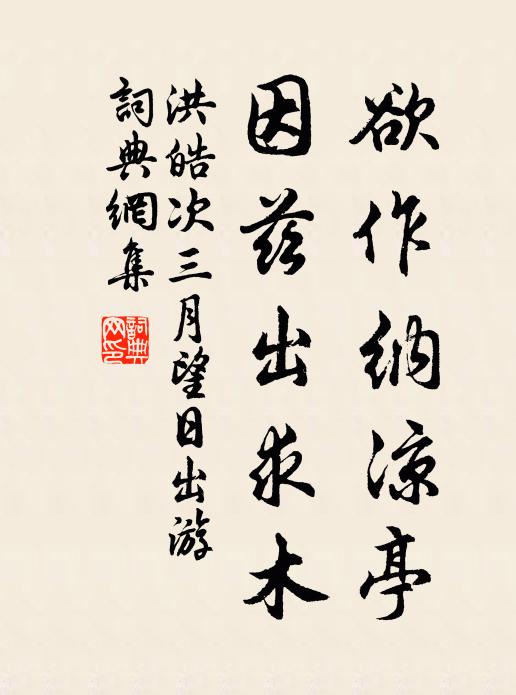 欲作纳凉亭
因兹出求木
洪皓次三月望日出游
詞典網集
詞典网印